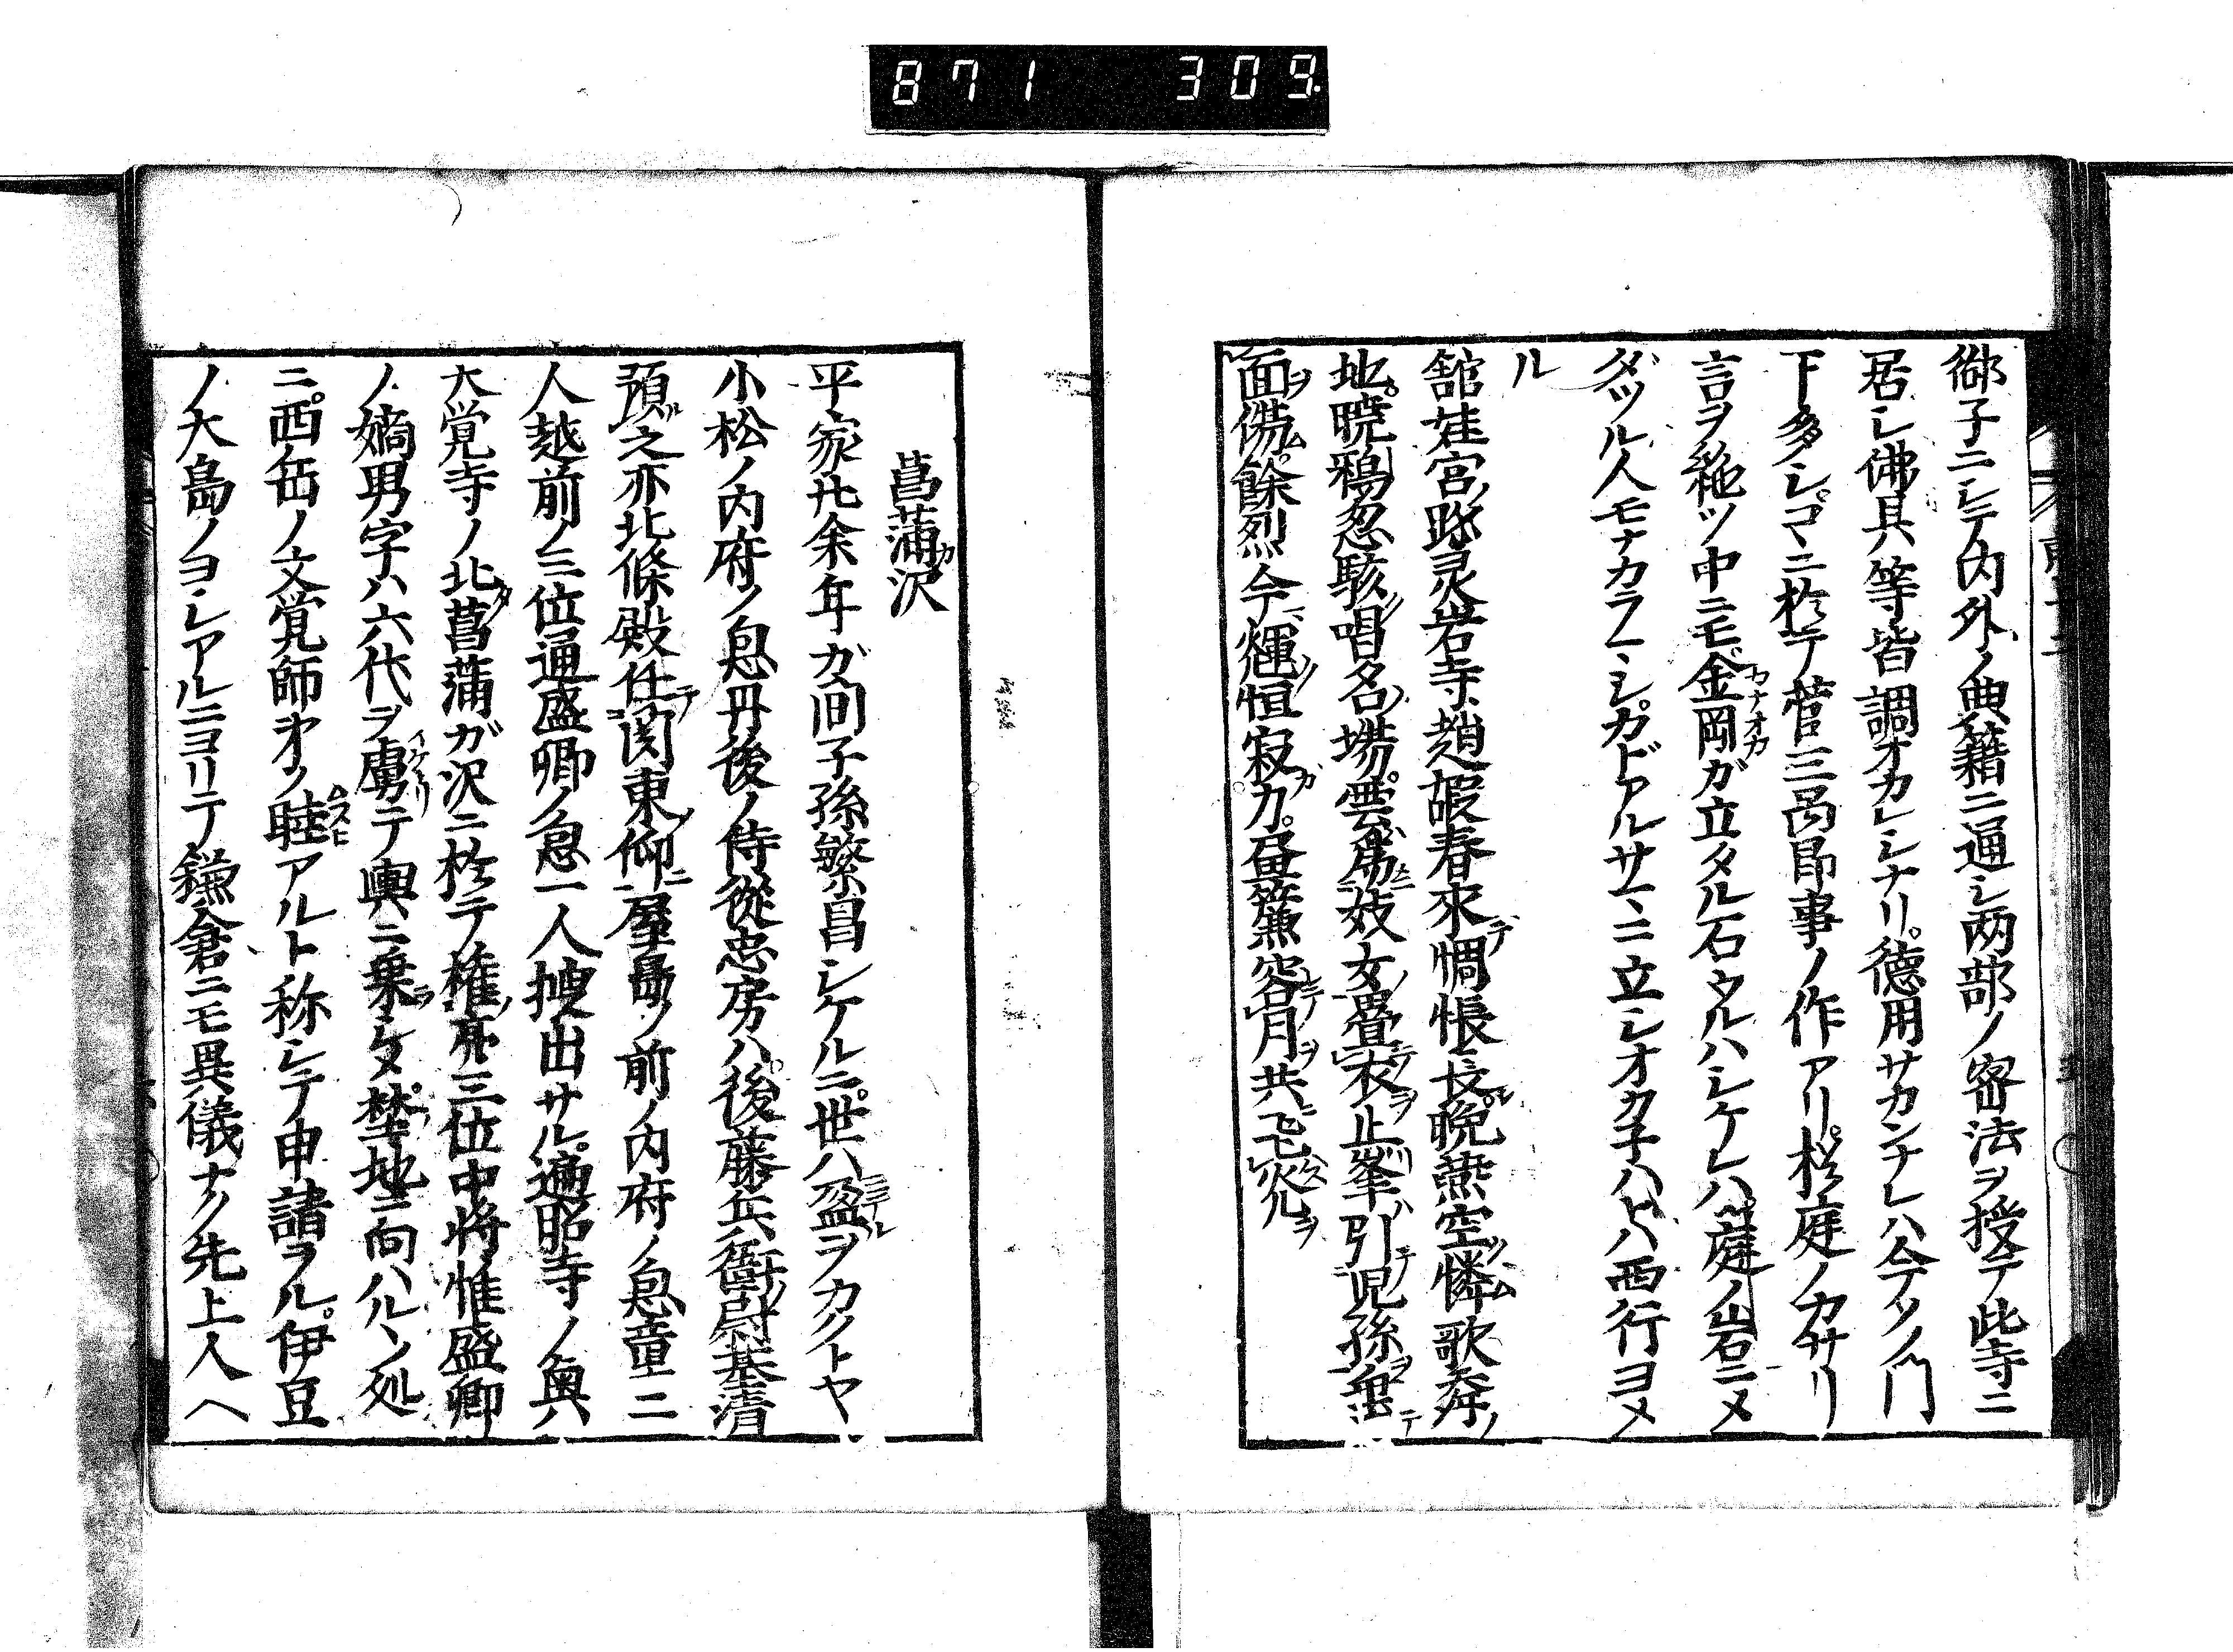 871 309
御子ニシテ内外ノ典籍ニ通シ両部ノ密法ヲ授テ此寺ニ
居シ佛具等皆調オカレシナリ。徳用サカンナレハ今テソノ門
下多シ。コヽニ於テ菅三品即事ノ作アリ。於庭ノカサリ
言ヲ絶ツ中ニモ金岡ガ立タル石ウルハシケレハ。庭ノ岩ニメ
ダツル人モナカラマシ。カドアルサマニ立シオカ子ハトハ西行ヨメ
ル
舘娃宮ノ跡灵岩寺。趙嘏春來テ惆悵長。晩燕空憐ム歌舞ノ
地。暁鴉忽駭唱名ノ場。雲為妓女畳衣ヲ止。峯ハ引児孫ヲ
面佛。餘烈今輝恒寂カ。畫簾容月ヲ共
菖蒲沢
平家廾余年ガ間子孫繁昌シケルニ。世ハ盈ヲカクトヤ
小松ノ内府ノ息丹後ノ侍從忠房ハ。後藤兵衛尉基清
預之亦北條殿任関東仰ニ屋島ノ前ノ内府ノ息童二
人越前ノ三位通盛卿ノ息一人捜出サル。遍昭寺ノ奥ハ
大覚寺ノ北菖蒲ガ沢ニ於テ權亮三位中将惟盛卿
ノ嫡男字ハ六代ヲ虜テ輿ニ乗シケメ。埜地ニ向ハルヽ処
ニ。西岳ノ文覚師弟ノ睦アルト称シテ申請ヲル。伊豆
ノ大島ノヨシアルニヨリテ鎌倉ニモ異儀ナク先上人ヘ